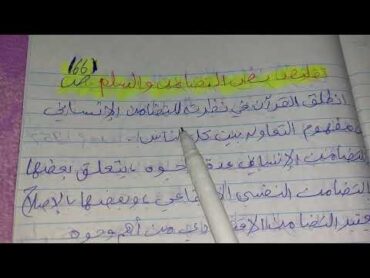 ص 66
تلخيص نص التضامن والسلم
انطلق القرآن في نظرته للتضامن الإنساني
مفهوم التعاون بين كل الناس.
التضامن الإنساني عدة وجوه، يتعلق بعضها
التضامن النفسي الاجتماعي، وبعضها بالإصلاح
يعتبر التضامن من أهم وجوه